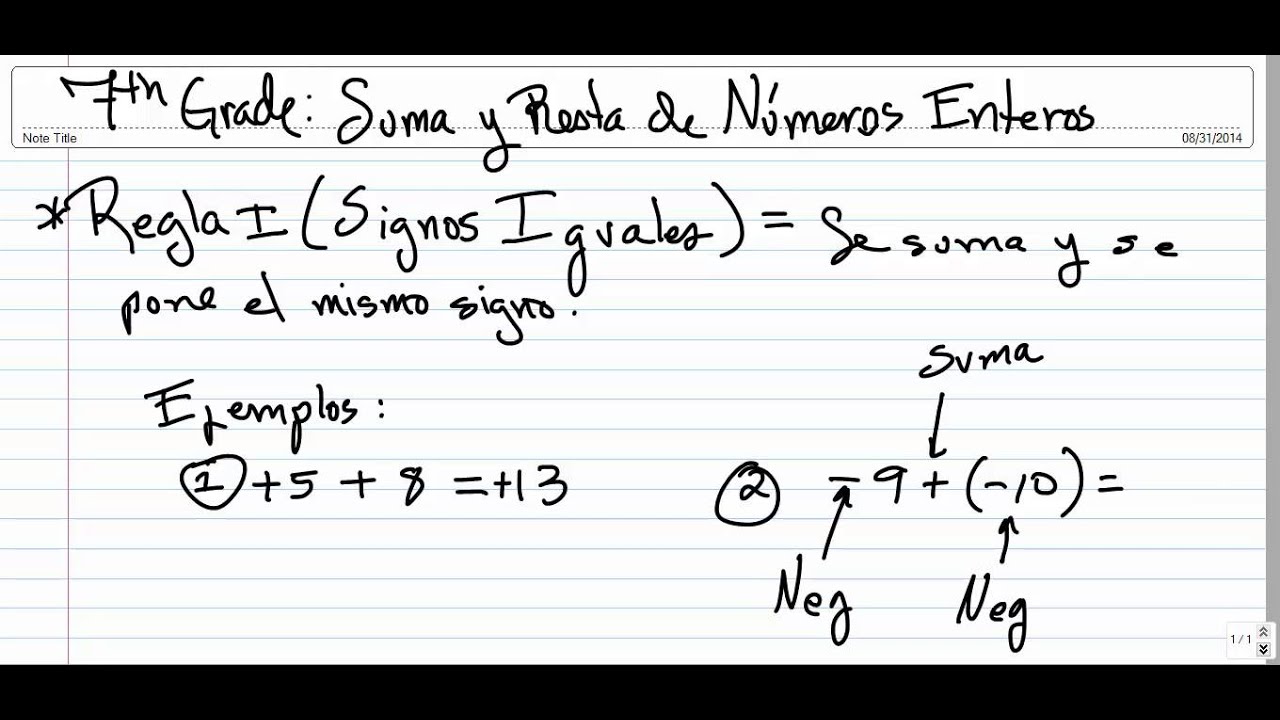 7th Grade: Suma y Resta de Números Enteros
Note Title
08/31/2014
* Regla I (Signos Iguales) = Se suma y se
pone el mismo signo.
Suma
Ejemplos:
1 +5 + 8 = +13
2 -9 + (-10) =
Neg Neg
1 / 1